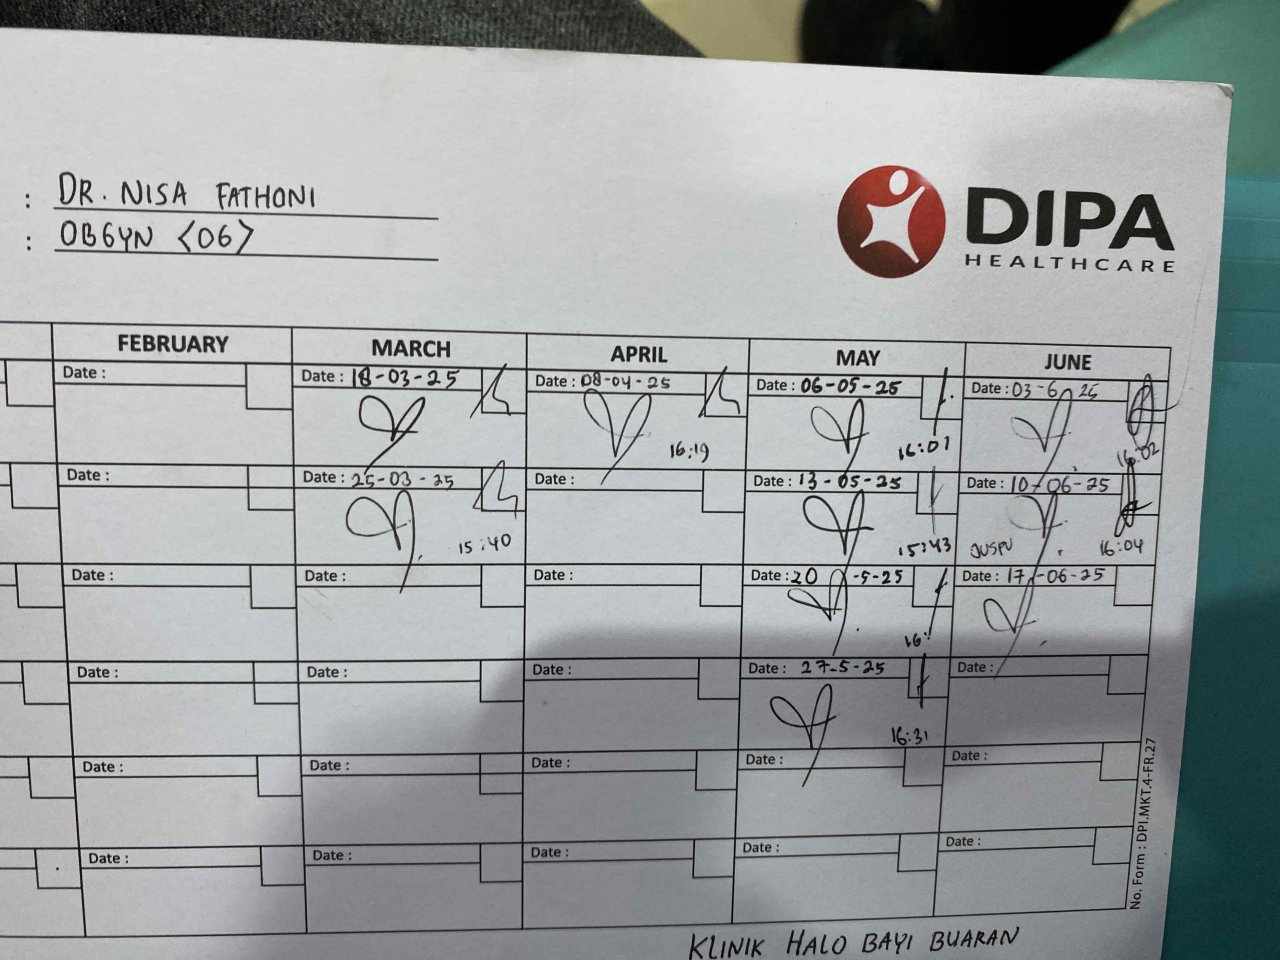 : DR. NISA FATHONI
: OBGYN <06>
DIPA
HEALTHCARE
FEBRUARY MARCH APRIL MAY JUNE
Date : Date : 18-03-25 Date : 08-04-25 Date : 06-05-25 Date : 03-6-25
16:19 16:01 16:02
Date : Date : 25-03-25 Date : Date : 13-05-25 Date : 10-06-25
15:40 15:43 16:04
Date : Date : Date : Date : 20-5-25 Date : 17-06-25
16:
Date : Date : Date : Date : 27-5-25 Date :
16:31
Date : Date : Date : Date : Date :
Date : Date : Date : Date : Date :
No. Form : DPI.MKT.4-FR.27
KLINIK HALO BAYI BUARAN